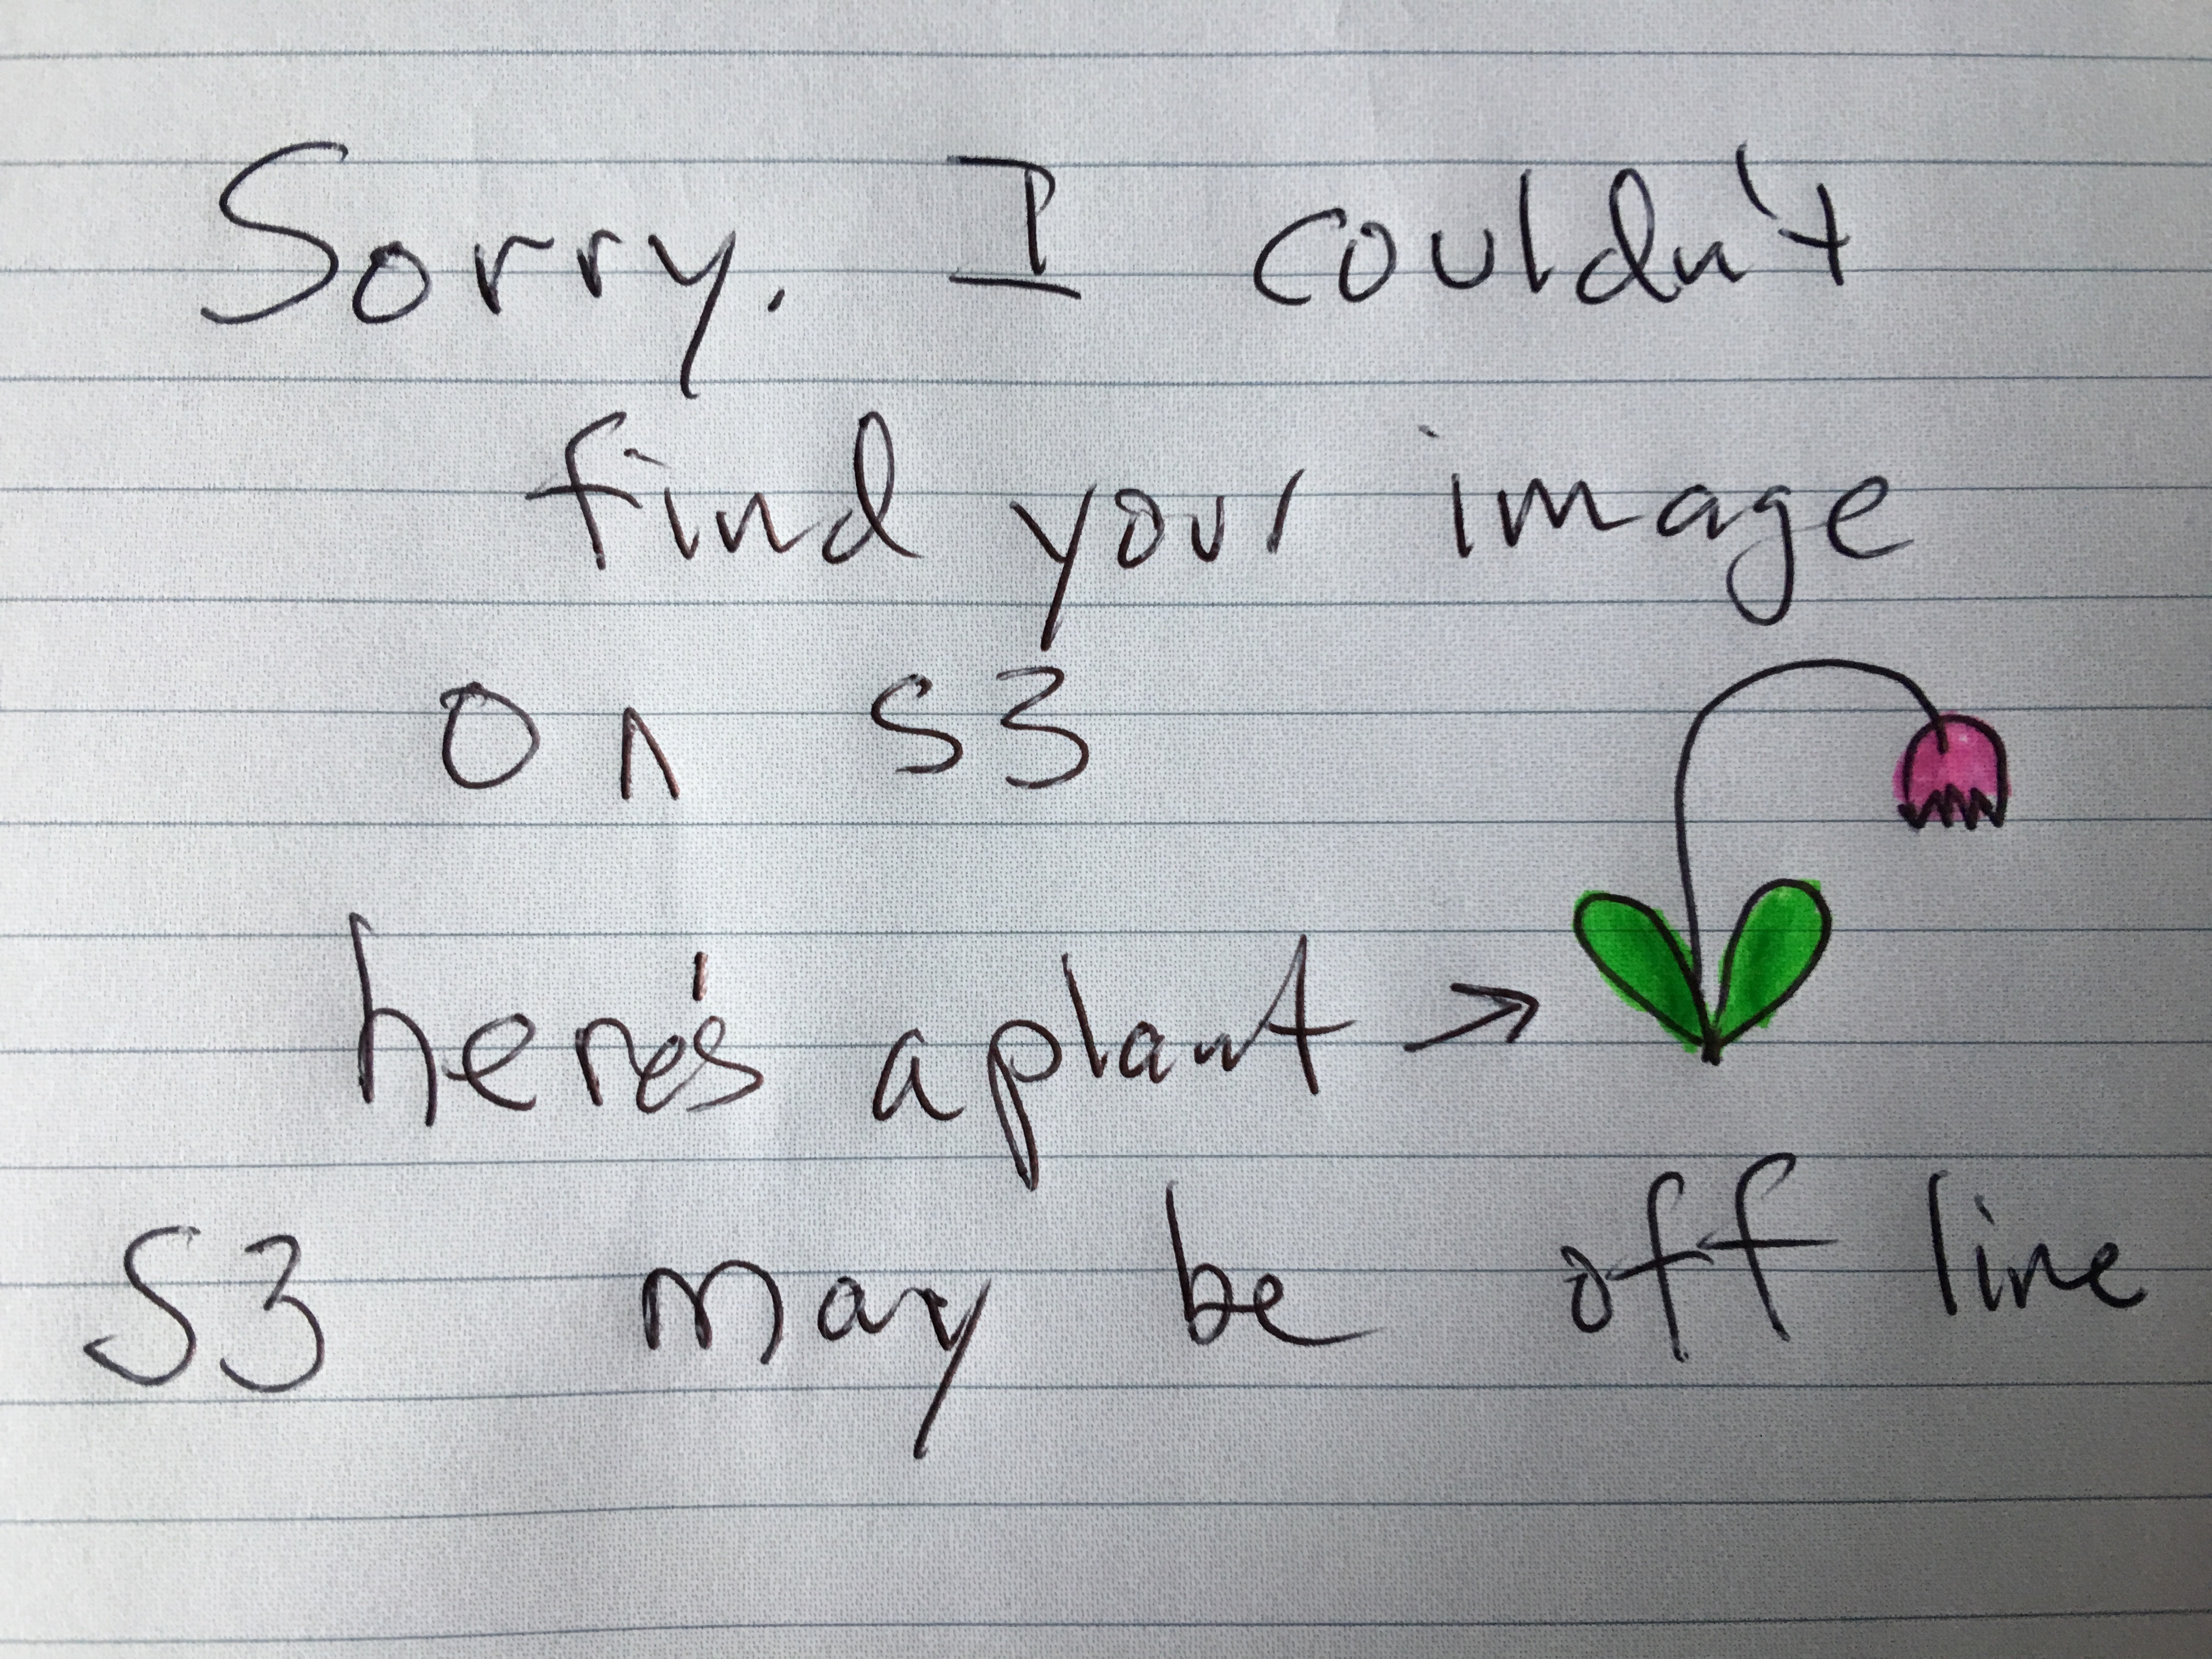 Sorry. I couldn't
find your image
on S3
here's a plant →
S3 may be off line